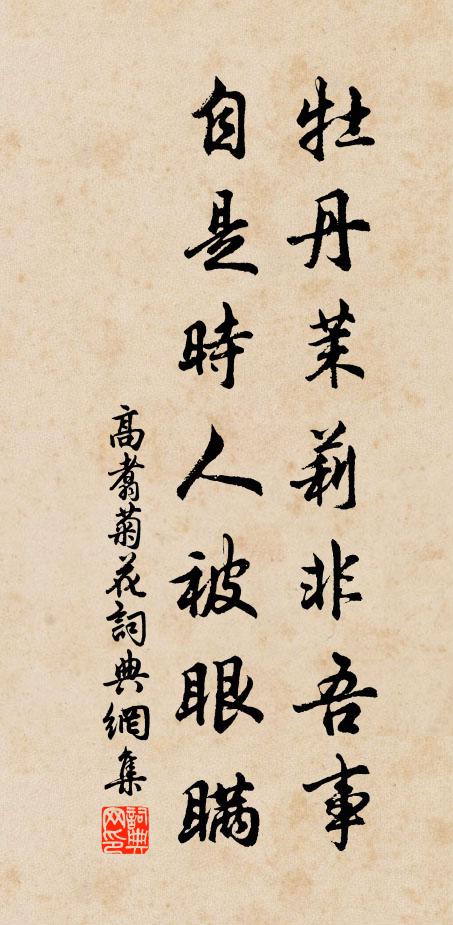 牡丹茉莉非吾事
自是時人被眼瞞
高翥菊花詞典網集
詞典網印